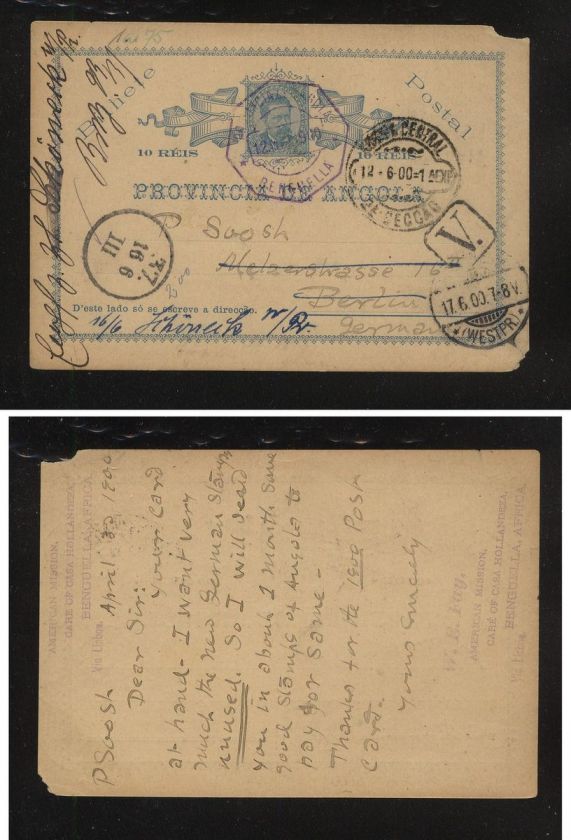 Bilhete Postal
10 RÉIS
10 RÉIS
PROVINCIA DE ANGOLA
BENGUELLA
CENTRAL
12-6-00=1
37.
16 6
III
V.
17.6.00.7-8V.
*(WESTPR)*
P Soosh
Metzerstrasse 16
Berlin
Germany
D'este lado só se escreve a direcção.
16/6 Schöneck W/Pr.
P Soosh April 30 1900
Dear Sir:
Your Card
at hand- I want very
much the new German Stamps
unused. So I will send
you in about 1 month some
good Stamps of Angola to
pay for same-
Thanks for the 1800 Post
Card.
Yours Sincerely
AMERICAN MISSION,
CARE OF CASA HOLLANDEZA,
BENGUELLA, AFRICA
Via Lisboa.
W. E. Fay.
AMERICAN MISSION,
CARE OF CASA HOLLANDEZA,
BENGUELLA, AFRICA
Via Lisboa.